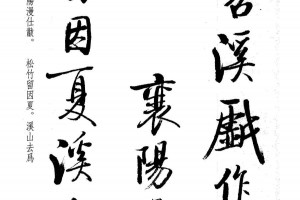 苕溪戲作
襄陽
因夏溪
陽漫仕黻。 松竹留因夏。溪山去爲